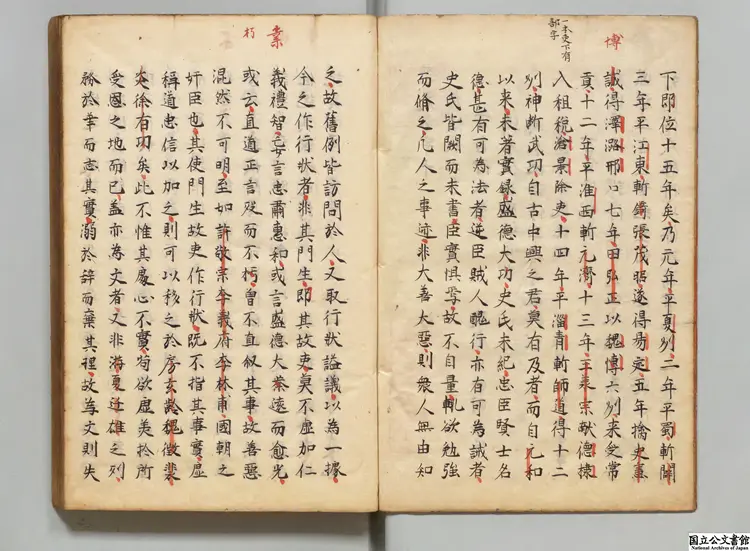 博
一本吏下有
部字
下即位十五年矣乃元年平夏州二年平蜀斬闢
三年平江東斬錡張茂昭遂得易定五年擒史憲
誠得澤潞邢口七年田弘正以魏博六州来受常
貢十二年平淮西斬元濟十三年王承宗献德棣
入租稅滄景除吏十四年平淄青斬師道得十二
州神斷武功自古中興之君莫有及者而自元和
以来未著實録盛德大功史氏未紀忠臣賢士名
德甚有可為法者逆臣賊人醜行亦有可為誡者
史氏皆闕而未書臣實惧焉故不自量輒欲勉強
而脩之凡人之事迹非大善大惡則衆人無由知
業
朽
之故舊例皆訪問於人又取行狀謚議以為一據
今之作行狀者非其門生即其故吏莫不虛加仁
義禮智妄言忠肅惠和或言盛德大業遠而愈光
或云直道正言殁而不朽曽不直叙其事故善惡
混然不可明至如許敬宗李義府李林甫國朝之
奸臣也其使門生故吏作行狀既不指其事實虛
稱道忠信以加之則可以移之於房玄齡魏徵裴
炎徐有功矣此不惟其處心不實苟欲虛美於所
受恩之地而已盖亦為文者又非游夏迁雄之列
務於華而忘其實溺於辞而棄其理故為文則失
国立公文書館
National Archives of Japan